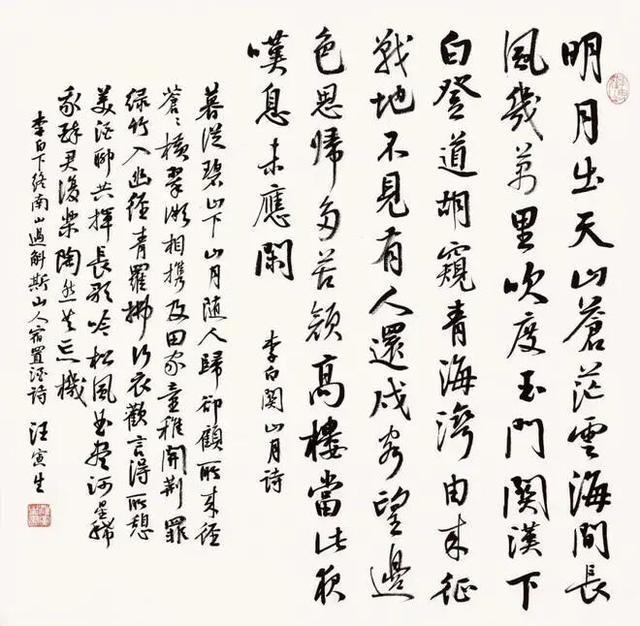 明月出天山蒼茫雲海間長
風幾萬里吹度玉門關漢下
白登道胡窺青海灣由來征
戰地不見有人還戍客望邊
色思歸多苦顏高樓當此夜
嘆息未應閑
李白關山月詩
暮從碧山下山月隨人歸卻顧所來徑
蒼〻橫翠微相攜及田家童稚開荊扉
綠竹入幽徑青蘿拂行衣歡言得所憩
美酒聊共揮長歌吟松風曲盡河星稀
我醉君復樂陶然共忘機
李白下終南山過斛斯山人宿置酒詩 汪寅生